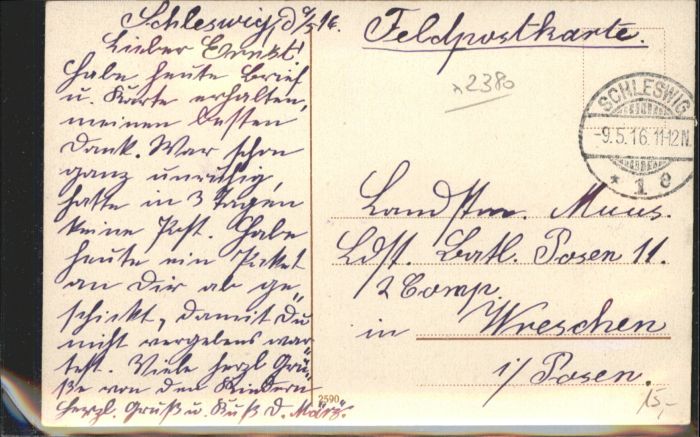 Schleswig, d. 9/5.16.
Lieber Ernst!
Habe heute Brief
u. Karte erhalten,
meinen besten
Dank. War schon
ganz unruhig,
hatte in 3 Tagen
keine Post. Habe
heute ein Paket
an Dir ab ge-
schickt, damit Du
nicht vergebens war-
test. Viele herzl. Grü-
ße von den Kindern
Herzl. Gruß u. Kuß D.
Feldpostkarte.
2380
SCHLESWIG
-9.5.16.11-12N.
* 1 e
Landstm. Muus.
Ldst. Batl. Posen 11.
/2 Comp.
in Wreschen
i/Posen.
2590
15,-